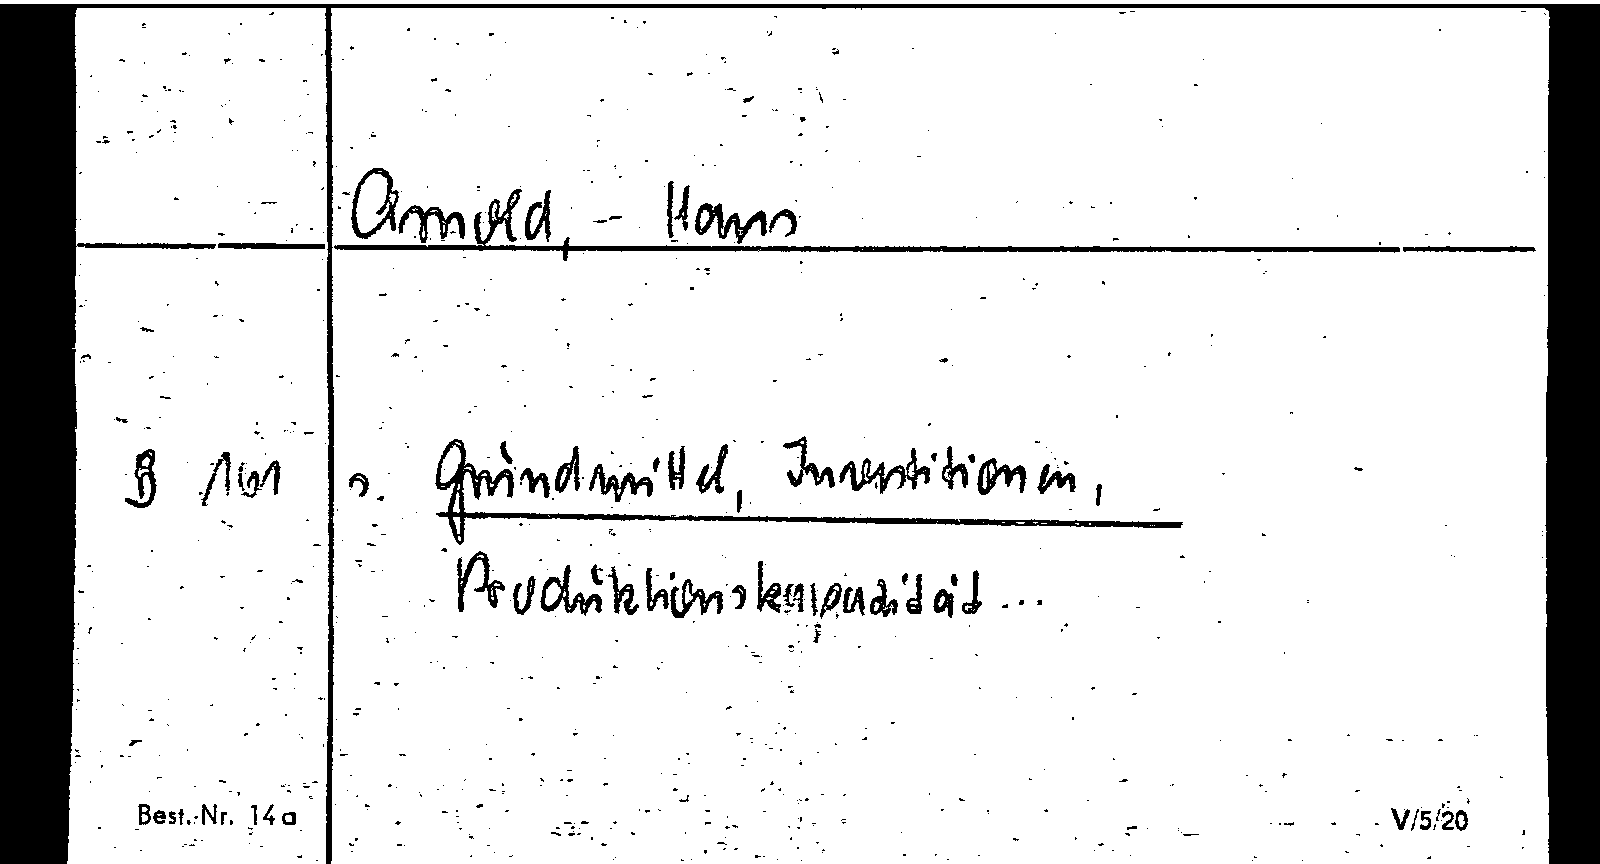 Arnold, - Hans
B 161 s. Grundmittel, Investitionen,
Produktionskapazität ...
Best.-Nr. 14a V/5/20